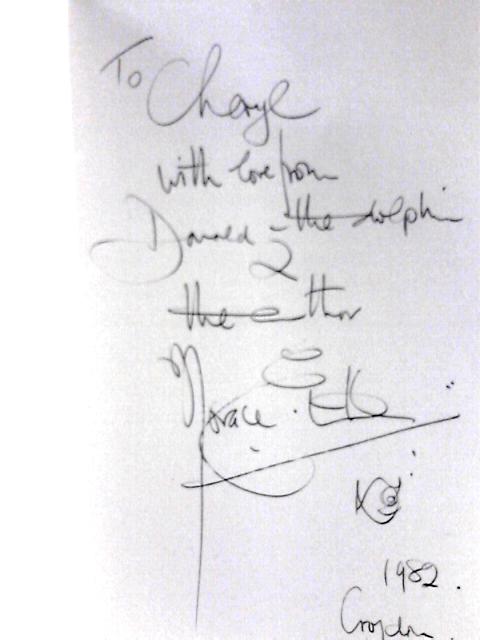 To Cheryl
with love from
Donald - the dolphin
&
the author
Horace
1982.
Croydon